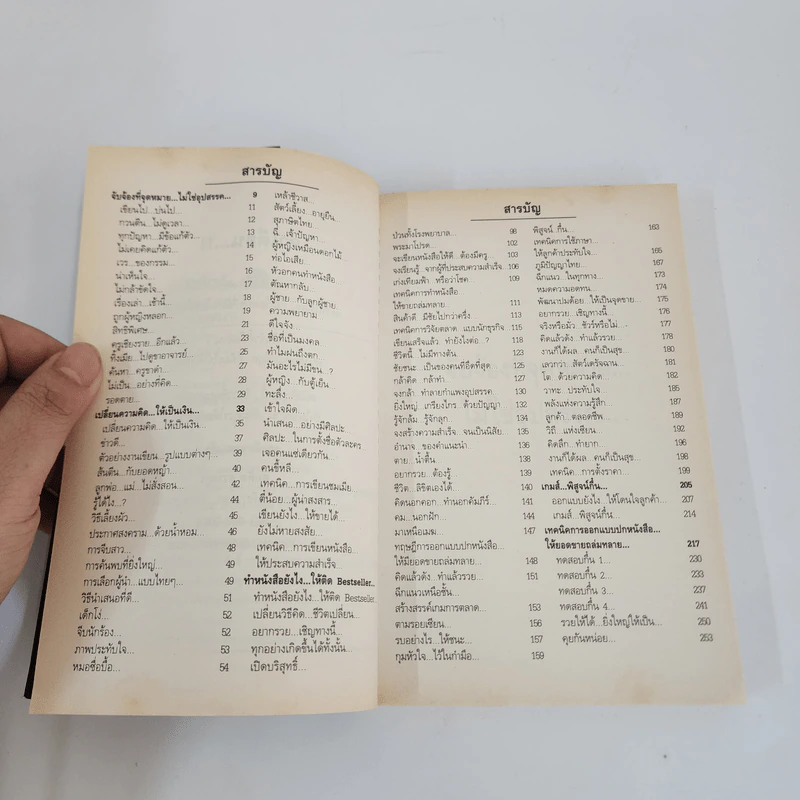 สารบัญ
จับจ้องที่จุดหมาย...ไม่ใช่อุปสรรค... 9
เขียนไป...บ่นไป... 11
กวนตีน...ไม่ดูเวลา... 12
ทุกปัญหา...มีข้อแก้ตัว... 13
ไม่เคยคิดแก้ตัว... 14
เวร...ของกรรม... 15
น่าเห็นใจ... 16
ไม่กล้าขัดใจ... 17
เรื่องเล่า...เช้านี้... 18
ถูกผู้หญิงหลอก... 19
สิทธิพิเศษ... 21
ครูเชียงราย...อีกแล้ว... 23
ทิ้งเมีย...ไปดูขาอาจารย์... 24
ค้นหา...ครูชาดำ... 27
ไม่เป็น...อย่างที่คิด... 28
รอดตาย... 29
เปลี่ยนความคิด...ให้เป็นเงิน... 33
เปลี่ยนความคิด...ให้เป็นเงิน... 35
ข่าวดี... 37
ตัวอย่างงานเขียน...รูปแบบต่างๆ... 39
ส้นตีน...กับยอดหญ้า... 40
ลูกพ่อ...แม่...ไม่สั่งสอน... 42
รู้ได้ไง...? 44
วิธีเลี้ยงผัว... 45
ประกาศสงคราม...ด้วยน้ำหอม... 46
การจีบสาว... 48
การค้นพบที่ยิ่งใหญ่... 49
การเลือกผู้นำ...แบบไทยๆ... 49
วิธีนำเสนอที่ดี... 51
เด็กโง่... 52
จีบนักร้อง... 52
ภาพประทับใจ... 53
หมอชื่อบื้อ... 54
เหล้าชีวาส...
สัตว์เลี้ยง...อายุยืน...
สุภาษิตไทย...
ฉี่...เจ้าปัญหา...
ผู้หญิงเหมือนดอกไม้
ท่อไอเสีย...
หัวอกคนทำหนังสือ
ตัณหากลับ...
ผู้ชาย...กับลูกผู้ชาย
ความพยายาม
ดีใจจัง...
ชื่อที่เป็นมงคล
ทำไมฝนถึงตก
มันอะไรไม่มีขน..?
ผู้หญิง...กับตู้เย็น
ทะลึ่ง...
เข้าใจผิด...
นำเสนอ...อย่างมีศิลปะ
ศิลปะ...ในการตั้งชื่อตัวละคร
เจอคนแซ่เดียวกัน...
คนขี้หลี...
เทคนิค...การเขียนชมเมีย
ตี๋น้อย...ผู้น่าสงสาร...
เขียนยังไง...ให้ขายได้...
ยังไม่หายสงสัย...
เทคนิค...การเขียนหนังสือ
ให้ประสบความสำเร็จ...
ทำหนังสือยังไง...ให้ติด Bestseller..
ทำหนังสือยังไง...ให้ติด Bestseller
เปลี่ยนวิธีคิด...ชีวิตเปลี่ยน...
อยากรวย...เชิญทางนี้...
ทุกอย่างเกิดขึ้นได้ทั้งนั้น...
เปิดบริสุทธิ์...
สารบัญ
ป่วนทั้งโรงพยาบาล... 98
พระมาโปรด... 102
จะเขียนหนังสือให้ดี...ต้องมีครู... 103
จงเรียนรู้...จากผู้ที่ประสบความสำเร็จ... 106
เก่งเทียมฟ้า...หรือวาโชค 109
เทคนิคการทำหนังสือ
ให้ขายถล่มทลาย... 111
สินค้าดี...มีชัยไปกว่าครึ่ง... 113
เทคนิคการวิจัยตลาด...แบบนักธุรกิจ... 115
เขียนเสร็จแล้ว...ทำยังไงต่อ..? 121
ชีวิตนี้...ไม่มีทางตัน... 123
ชัยชนะ...เป็นของคนที่อึดที่สุด... 125
กล้าคิด...กล้าทำ 126
จงกล้า...ทำลายกำแพงอุปสรรค... 130
ยิ่งใหญ่...เกรียงไกร...ด้วยปัญญา... 132
รู้จักล้ม...รู้จักลุก... 134
จงสร้างความสำเร็จ...จนเป็นนิสัย... 135
อำนาจ...ของคำแนะนำ... 136
ตาย...น้ำตื้น... 138
อยากรวย...ต้องรู้... 139
ชีวิต...ลิขิตเองได้... 140
คิดนอกคอก...ทำนอกคัมภีร์... 141
คม...นอกฝัก... 144
มาเหนือเมฆ... 147
ทฤษฎีการออกแบบปกหนังสือ...
ให้มียอดขายถล่มทลาย... 148
คิดแล้วดัง...ทำแล้วรวย... 151
ฉีกแนวเหนือชั้น...
สร้างสรรค์เกมการตลาด... 153
ตามรอยเซียน... 156
รบอย่างไร...ให้ชนะ... 157
กุมหัวใจ...ไว้ในกำมือ... 159
พิสูจน์...กึ๋น... 163
เทคนิคการใช้ภาษา...
ให้ลูกค้าประทับใจ... 165
ภูมิปัญญาไทย... 167
ฉีกแนว...ในทุกทาง... 173
หมดความอดทน... 174
พัฒนาปมด้อย...ให้เป็นจุดขาย... 175
อยากรวย...เชิญทางนี้... 176
จริงหรือมั่ว...ชัวร์หรือไม่... 177
คิดแล้วดัง...ทำแล้วรวย... 178
งานก็ได้ผล...คนก็เป็นสุข... 179
เลวกว่า...สัตว์เดรัจฉาน... 181
โต...ด้วยความคิด... 182
วาทะ...ประทับใจ... 185
พลังแห่งความรู้สึก... 187
ลูกค้า...ตลอดชีพ... 189
วิถี...แห่งเซียน... 191
คิดลึก...ทำยาก... 196
งานก็ได้ผล...คนก็เป็นสุข... 198
เทคนิค...การตั้งราคา... 199
เกมส์...พิสูจน์กึ๋น... 205
ออกแบบยังไง...ให้โดนใจลูกค้า... 207
เกมส์...พิสูจน์กึ๋น... 214
เทคนิคการออกแบบปกหนังสือ...
ให้ยอดขายถล่มทลาย... 217
ทดสอบกึ๋น 1... 230
ทดสอบกึ๋น 2... 233
ทดสอบกึ๋น 3... 237
ทดสอบกึ๋น 4... 241
รวยให้ได้...ยิ่งใหญ่ให้เป็น... 250
คุยกันหน่อย... 253